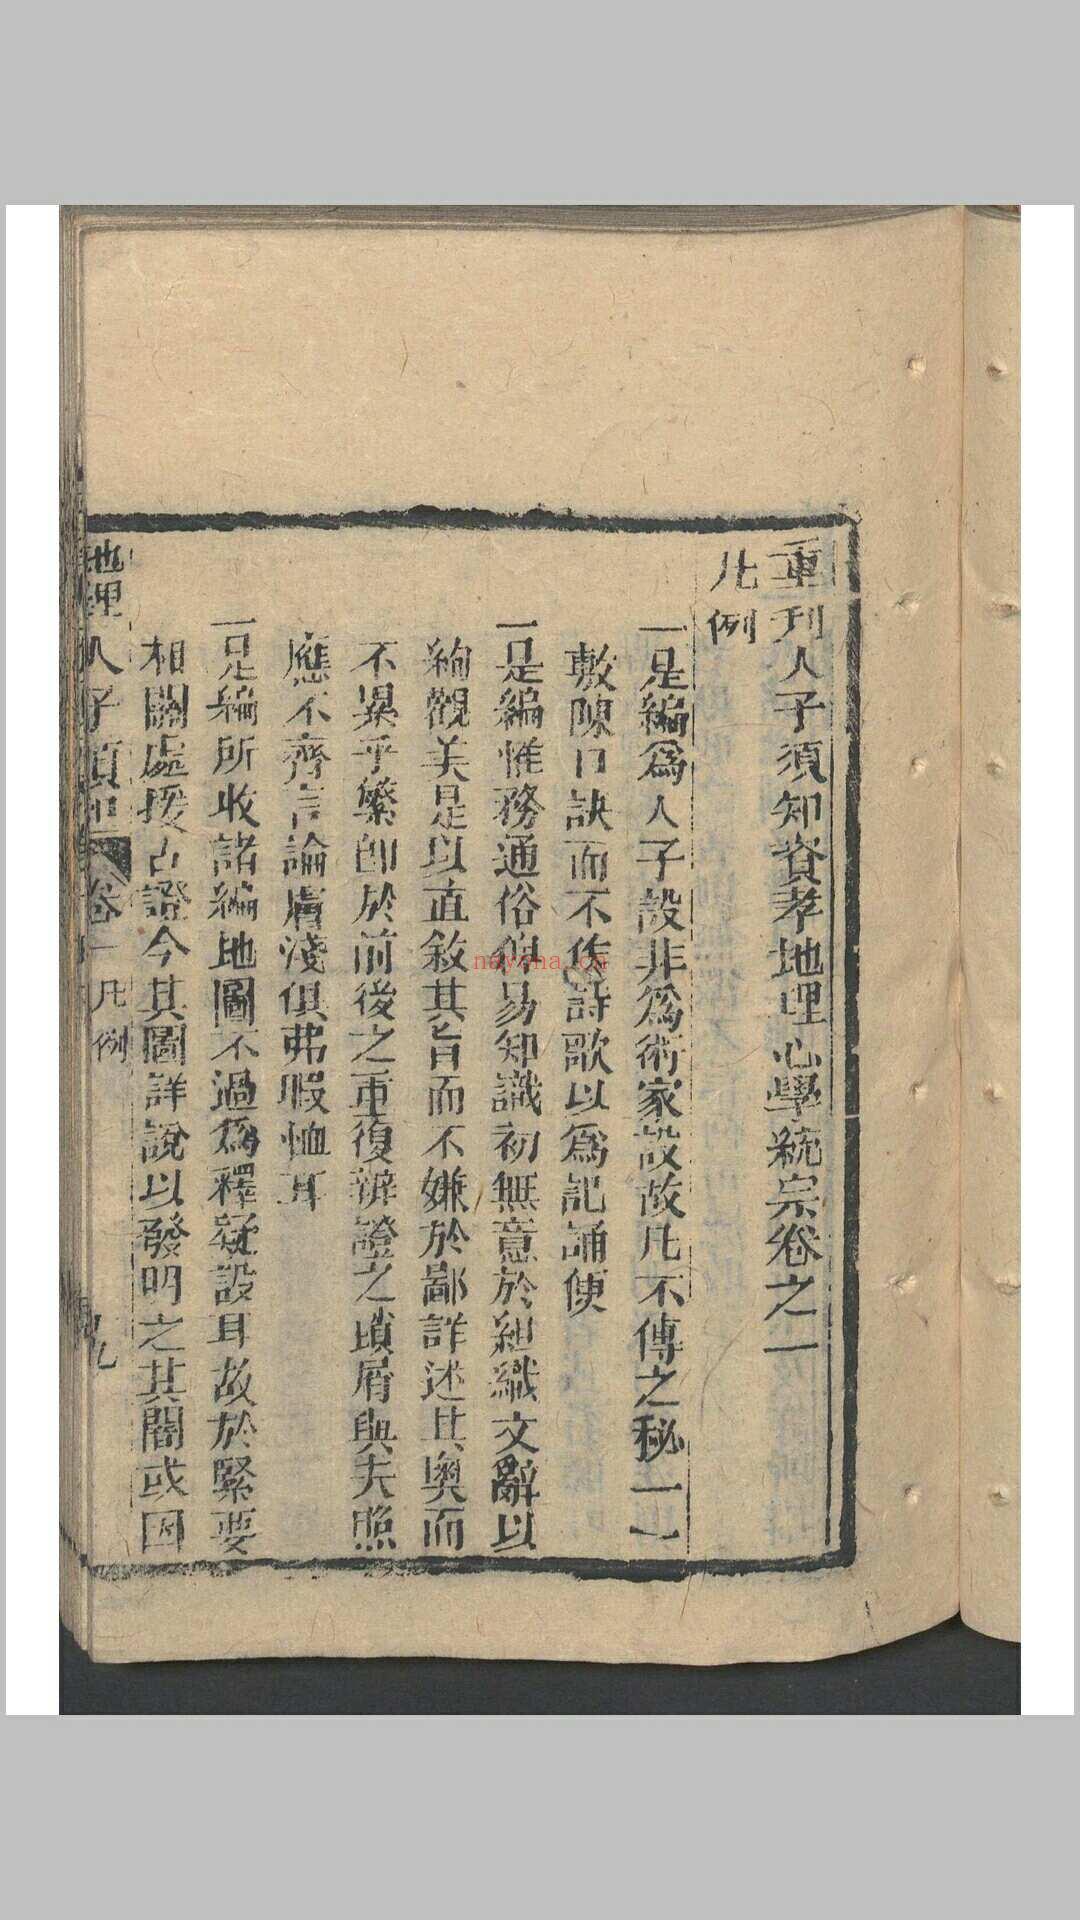 重刊人子須知資孝地理心學統宗卷之一
凡例
一是編爲人子設非爲術家設故凡不傳之秘一一
敷陳口訣而不作詩歌以爲記誦便
一是編惟務通俗俾易知識初無意於組織文辭以
絢觀美是以直敘其旨而不嫌於鄙詳述其奧而
不異乎繁卽於前後之重復辯證之瑣屑與夫照
應不齊言論膚淺俱弗暇恤耳
一是編所收諸編地圖不過爲釋疑設耳故於緊要
相關處援古證今其圖詳說以發明之其閣或因
地理人子須知 卷一凡例 九
nayona.cn